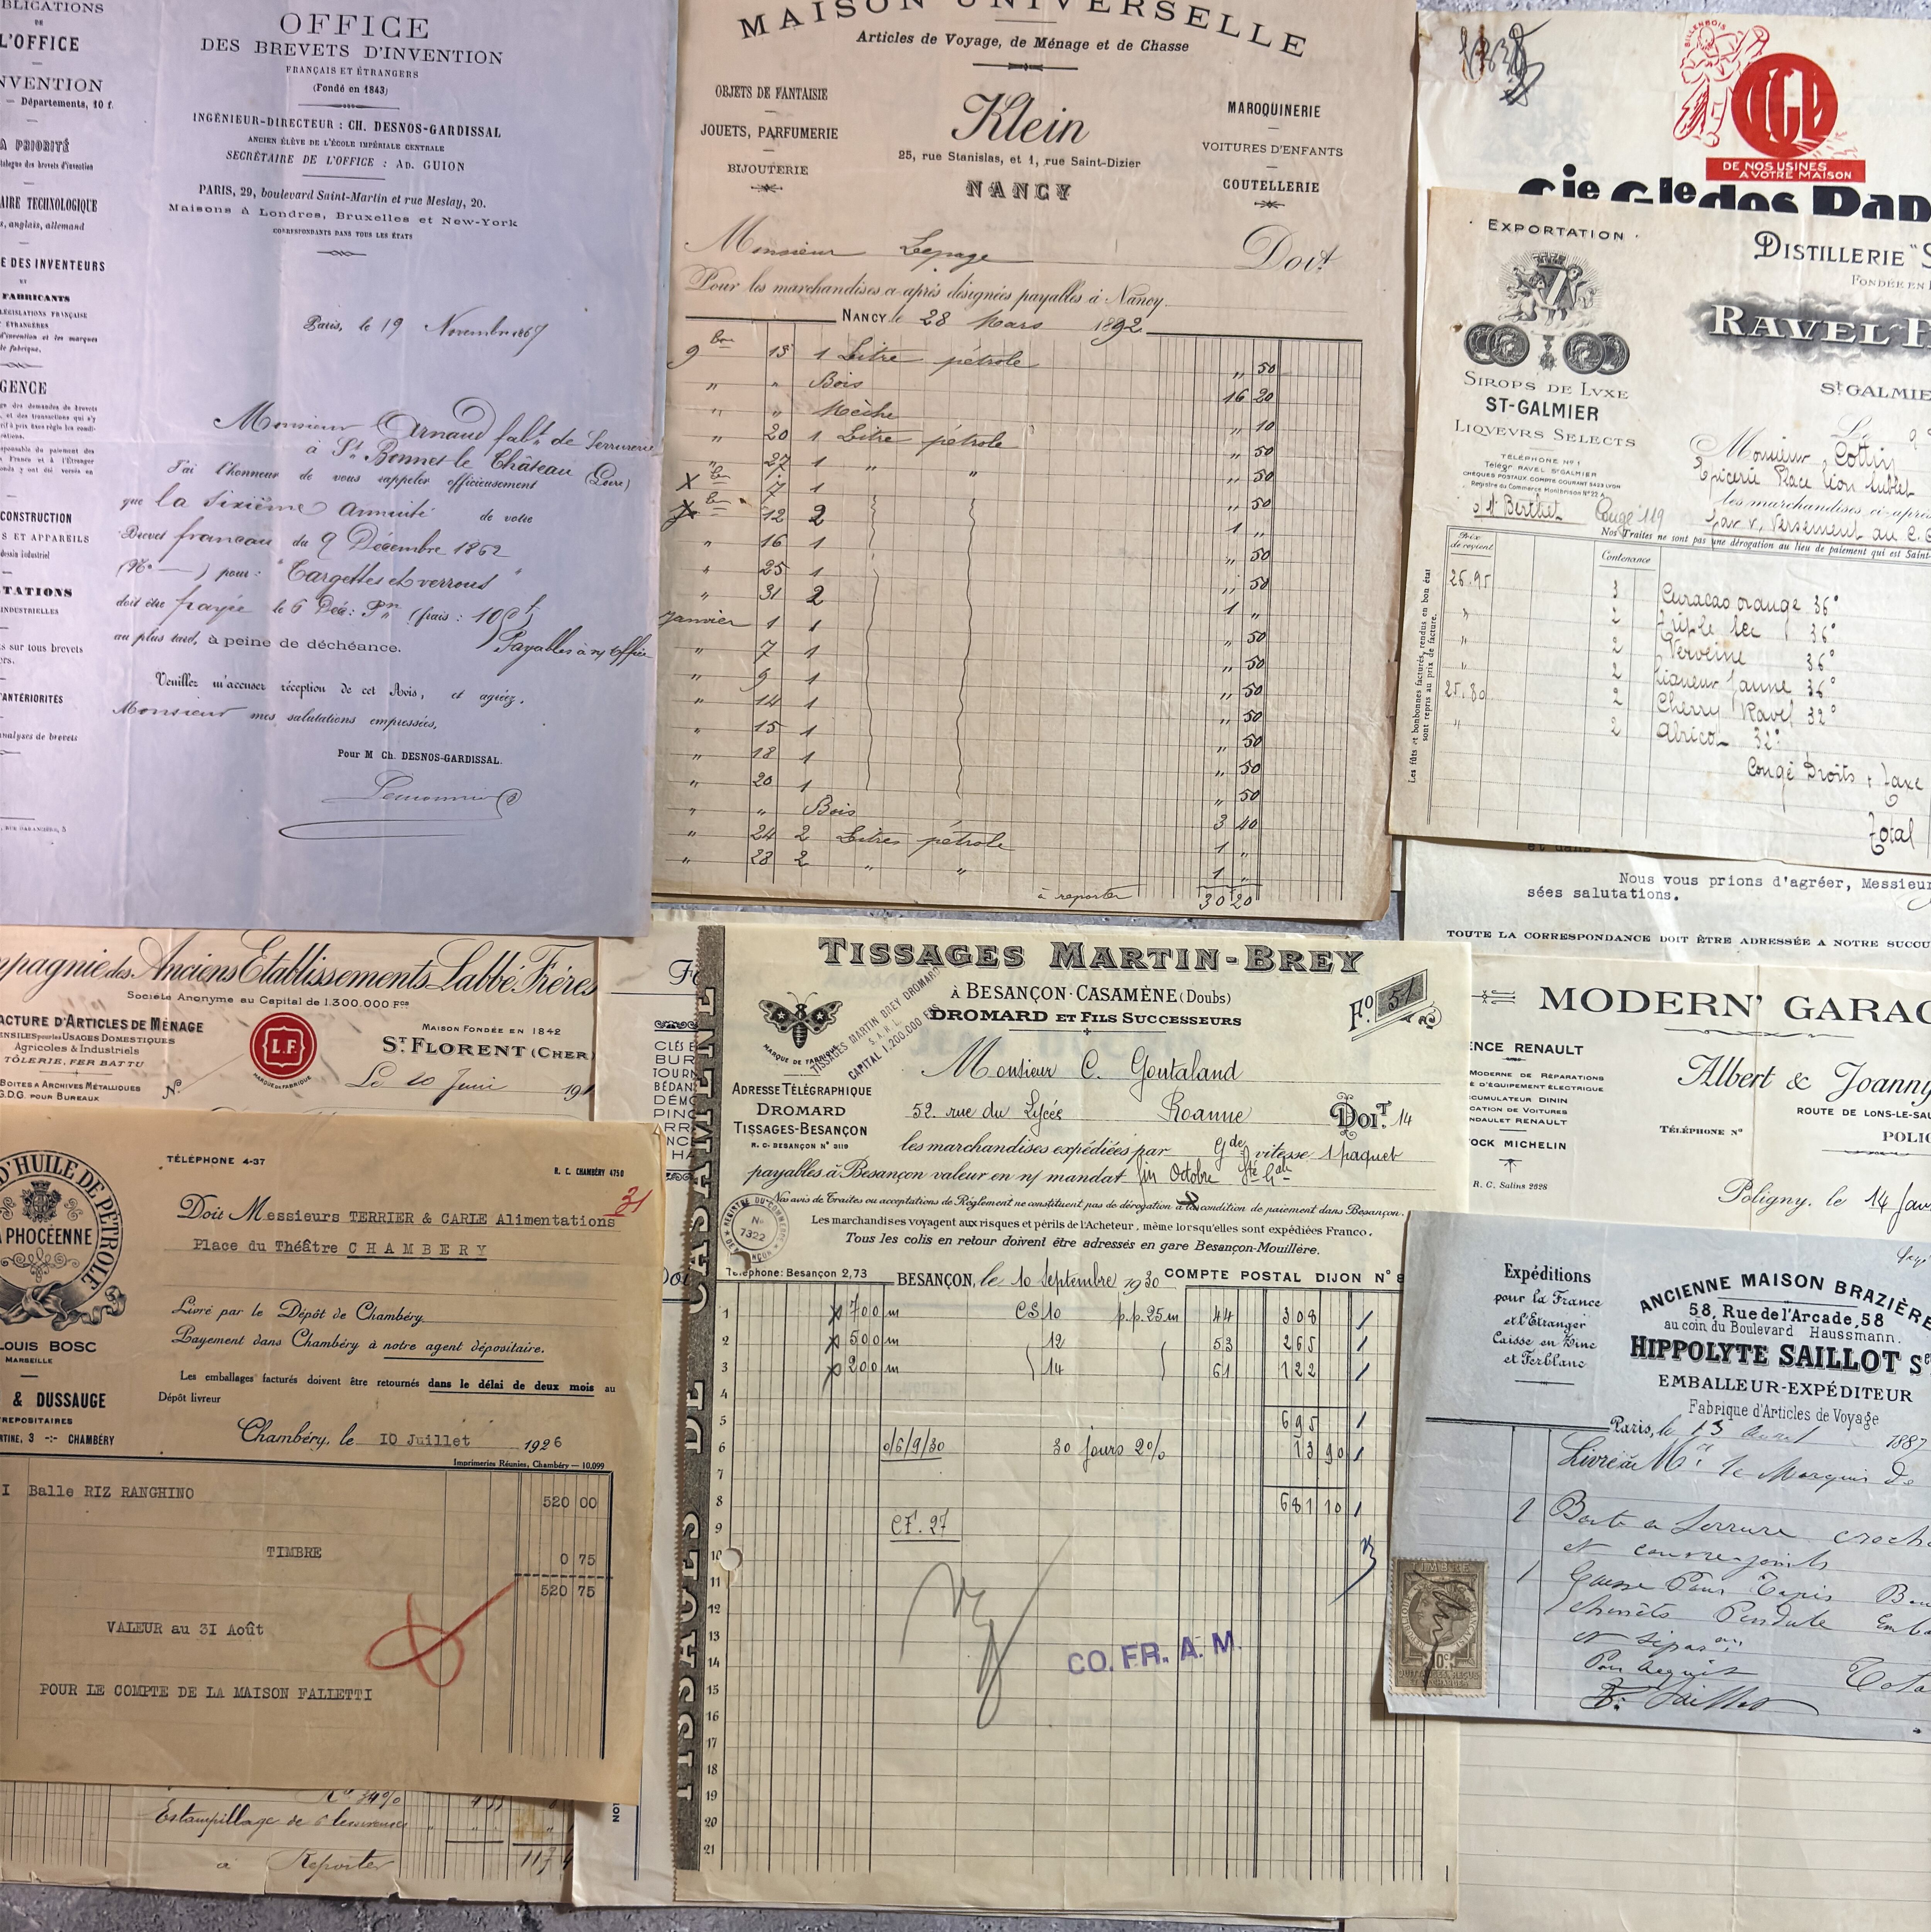 BLICATIONS
DE
L'OFFICE
NVENTION
— Départements, 10 f.
A PRIORITÉ
talogue des brevets d'invention
AIRE TECHNOLOGIQUE
s, anglais, allemand
E DES INVENTEURS
ET
FABRICANTS
LÉGISLATIONS FRANÇAISE
ÉTRANGÈRES
d'invention et les marques
de fabrique.
GENCE
CONSTRUCTION
S ET APPAREILS
dessin industriel
TATIONS
INDUSTRIELLES
s sur tous brevets
ers.
'ANTÉRIORITÉS
nalyses de brevets
, RUE GARANCIÈRE, 5
OFFICE
DES BREVETS D'INVENTION
FRANÇAIS ET ÉTRANGERS
(Fondé en 1843)
INGÉNIEUR-DIRECTEUR : CH. DESNOS-GARDISSAL
ANCIEN ÉLÈVE DE L'ÉCOLE IMPÉRIALE CENTRALE
SECRÉTAIRE DE L'OFFICE : AD. GUION
PARIS, 29, boulevard Saint-Martin et rue Meslay, 20.
Maisons à Londres, Bruxelles et New-York
CORRESPONDANTS DANS TOUS LES ÉTATS
Paris, le 19 Novembre 1867
Monsieur Arnaud fabt de Serrurerie
à St Bonnet le Château (Loire)
J'ai l'honneur de vous rappeler officieusement
que la sixième annuité de votre
Brevet francais du 9 Décembre 1862
(No —) pour : "Targettes et verrous"
doit être payée le 6 Déc: Pn (frais : 100f)
au plus tard, à peine de déchéance. Payables à n/ office
Veuillez m'accuser réception de cet Avis, et agréez,
Monsieur mes salutations empressées,
Pour M Ch. DESNOS-GARDISSAL.
MAISON UNIVERSELLE
Articles de Voyage, de Ménage et de Chasse
OBJETS DE FANTAISIE
JOUETS, PARFUMERIE
BIJOUTERIE
Klein
25, rue Stanislas, et 1, rue Saint-Dizier
NANCY
MAROQUINERIE
VOITURES D'ENFANTS
COUTELLERIE
Monsieur Lepage Doit
Pour les marchandises ci-après désignées payables à Nancy.
NANCY le 28 Mars 1892
9bre 15 1 Litre pétrole " 50
" " Bois 16 20
" " Mèche " 10
" 20 1 Litre pétrole " 50
" 27 1 " " " 50
Xbre 7 1 " 50
Xbre 12 2 1 "
" 16 1 " 50
" 25 1 " 50
" 31 2 1 "
Janvier 1 1 " 50
" 7 1 " 50
" 9 1 " 50
" 14 1 " 50
" 15 1 " 50
" 18 1 " 50
" 20 1 " 50
" " Bois 3 40
" 24 2 Litres pétrole 1 "
" 28 2 " " 1 "
à reporter 30 20
BILLENBOIS
DE NOS USINES
A VOTRE MAISON
Cie Gle des
EXPORTATION
SIROPS DE LVXE
ST-GALMIER
LIQVEVRS SELECTS
TÉLÉPHONE No 1
Télégr. RAVEL St GALMIER
CHÈQUES POSTAUX COMPTE COURANT 5423 LYON
Registre du Commerce Montbrison No 22 A
DISTILLERIE "S
FONDÉE EN
RAVEL F
St GALMIE
Le
Monsieur Cottin
Epicerie Place Léon
les marchandises ci-après
par v. Versement au C. C
Mr Berthet Congé 119
Nos Traites ne sont pas une dérogation au lieu de paiement qui est Saint-
Prix de revient
Contenance
Les fûts et bonbonnes facturés, rendus en bon état
sont repris au prix de facture.
26.95 3 Curacao orange 36°
" 2 Triple sec 36°
" 2 Verveine 36°
" 2 Liqueur Jaune 36°
25.80 2 Cherry Ravel 32°
" 2 Abricot 32°
Congé Droits + Taxe
Total
Nous vous prions d'agréer, Messieur
sées salutations.
TOUTE LA CORRESPONDANCE DOIT ÊTRE ADRESSÉE A NOTRE SUCCU
mpagnie des Anciens Etablissements Labbé Frères
Société Anonyme au Capital de 1.300.000 Fcs
ACTURE D'ARTICLES DE MÉNAGE
ENSILES pour les USAGES DOMESTIQUES
Agricoles & Industriels
TÔLERIE, FER BATTU
BOITES A ARCHIVES MÉTALLIQUES
G.D.G. POUR BUREAUX
L.F.
MARQUE DE FABRIQUE
MAISON FONDÉE EN 1842
ST FLORENT (CHER)
No
Le 20 Juin 191
D'HUILE DE PÉTROLE
PHOCÉENNE
LOUIS BOSC
MARSEILLE
& DUSSAUGE
REPOSITAIRES
RTINE, 3 -:- CHAMBÉRY
TÉLÉPHONE 4-37
R. C. CHAMBÉRY 4750
31
Doit Messieurs TERRIER & CARLE Alimentations
Place du Théâtre CHAMBERY
Livré par le Dépôt de Chambéry
Payement dans Chambéry à notre agent dépositaire.
Les emballages facturés doivent être retournés dans le délai de deux mois au
Dépôt livreur
Chambéry, le 10 Juillet 1926
Imprimeries Réunies, Chambéry — 10.099
I Balle RIZ RANGHINO 520 00
TIMBRE 0 75
520 75
VALEUR au 31 Août
POUR LE COMPTE DE LA MAISON FALLETTI
Estampillage de 6
à Reporter
CLÉS
BUR
TOURN
BÉDAN
DÉMO
PINC
ARR
TISSAGES DE CASAMENE
TISSAGES MARTIN-BREY
à BESANÇON-CASAMÈNE (Doubs)
DROMARD ET FILS SUCCESSEURS
MARQUE DE FABRIQUE
TISSAGES MARTIN BREY DROMARD
S.A.R.L.
CAPITAL 1.200.000 FRS
Fo. 51
Monsieur C. Goutaland
ADRESSE TÉLÉGRAPHIQUE
DROMARD
TISSAGES-BESANÇON
R. C. BESANÇON No 3119
52 rue du Lycée Roanne DOIT. 14
les marchandises expédiées par Gde vitesse 1 paquet
payables à Besançon valeur en n/ mandat fin Octobre Sté Gle
Nos avis de Traites ou acceptations de Règlement ne constituent pas de dérogation à la condition de paiement dans Besançon.
Les marchandises voyagent aux risques et périls de l'Acheteur, même lorsqu'elles sont expédiées Franco.
Tous les colis en retour doivent être adressés en gare Besançon-Mouillère.
REGISTRE DU COMMERCE
No
7322
Téléphone: Besançon 2,73
BESANÇON, le 10 Septembre 1930 COMPTE POSTAL DIJON No 8
1 700 m CS 10 p.p. 25 m 44 308
2 500 m 12 53 265
3 200 m 14 61 122
4
5 695
6 o/6/9/30 30 jours 2% 13 90
7
8 681 10
9 CF. 27
10
11
12
13
CO. FR. A. M.
14
15
16
17
18
19
20
21
MODERN' GARAG
NCE RENAULT
MODERNE DE RÉPARATIONS
E D'ÉQUIPEMENT ÉLECTRIQUE
CUMULATEUR DININ
CATION DE VOITURES
NDAULET RENAULT
OCK MICHELIN
R. C. Salins 2628
Albert & Joanny
ROUTE DE LONS-LE-SAU
TÉLÉPHONE No
POLIG
Poligny, le 14 Janv
Expéditions
pour la France
et l'Etranger
Caisse en Zinc
et Ferblanc
ANCIENNE MAISON BRAZIÈRE
58, Rue de l'Arcade, 58
au coin du Boulevard Haussmann.
HIPPOLYTE SAILLOT Sr
EMBALLEUR-EXPÉDITEUR
Fabrique d'Articles de Voyage
Paris, le 13 1887
Livré à Mr le Marquis de
et couvre-joints
Pendule
Pour acquit
Saillot
Total
TIMBRE
10c